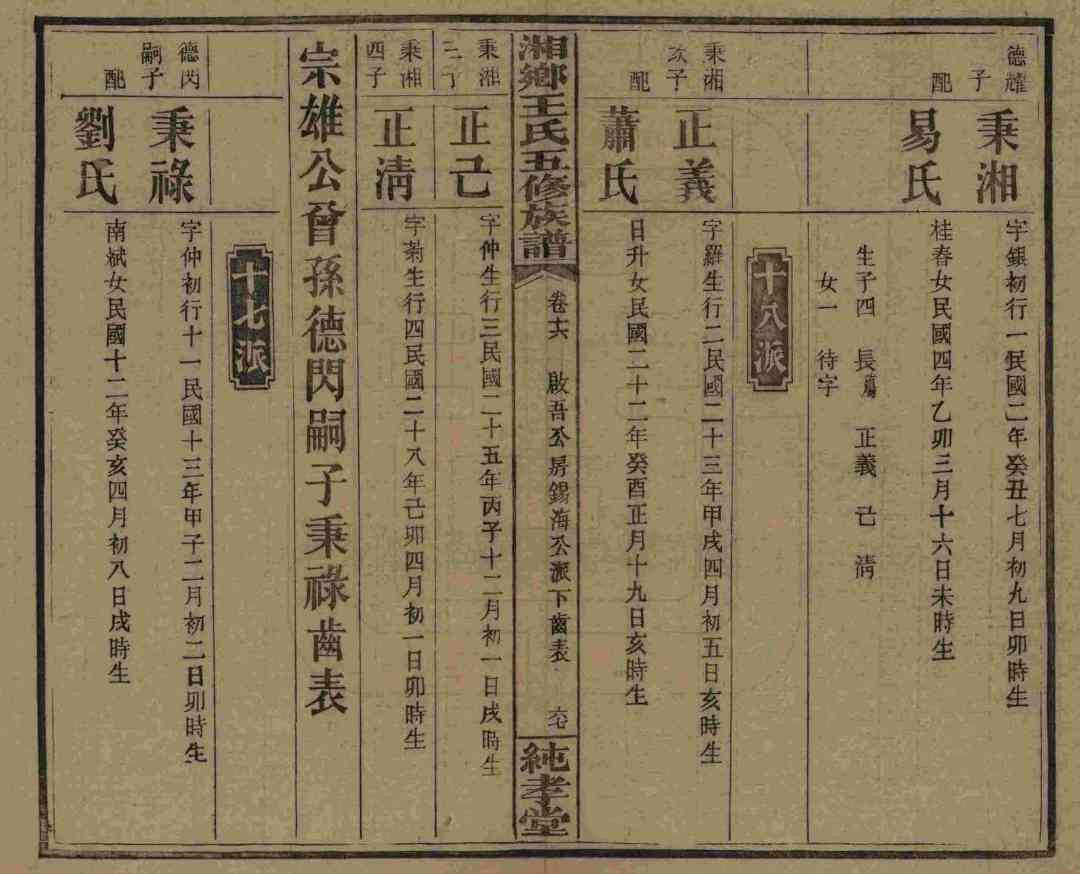 德耀子
秉湘
字銀初行一民國二年癸丑七月初九日卯時生
配
易氏
桂春女民國四年乙卯三月十六日未時生
生子四 長殤 正義 己 清
女一 待字
十八派
秉湘次子
正義
字羅生行二民國二十三年甲戌四月初五日亥時生
配
蕭氏
日升女民國二十二年癸酉正月十九日亥時生
湘鄉王氏五修族譜
卷十六 啟吾公房錫海公派下齒表
純孝堂
秉湘三子
正己
字仲生行三民國二十五年丙子十二月初一日戌時生
秉湘四子
正清
字菊生行四民國二十八年己卯四月初一日卯時生
宗雄公曾孫德閃嗣子秉祿齒表
十七派
德閃嗣子
秉祿
字仲初行十一民國十三年甲子二月初二日卯時生
配
劉氏
南斌女民國十二年癸亥四月初八日戌時生